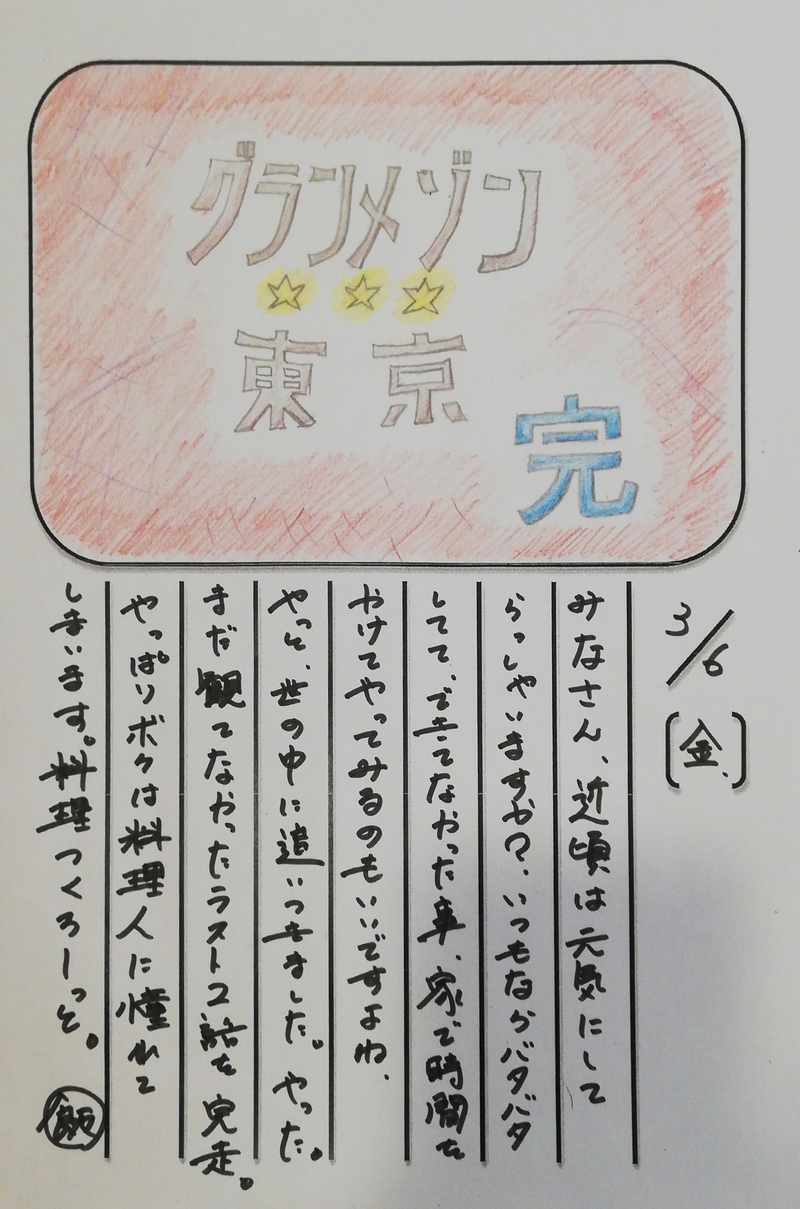 グランメゾン
☆☆☆
東京
完
3/6
[金]
みなさん、近頃は元気にして
らっしゃいますか?、いつもならバタバタ
してて、できてなかった事、家で時間を
かけてやってみるのもいいですよね、
やっと、世の中に追いつきました。やった。
まだ観てなかったラスト2話を完走。
やっぱりボクは料理人に憧れて
しまいます。料理つくろーっと。
飯